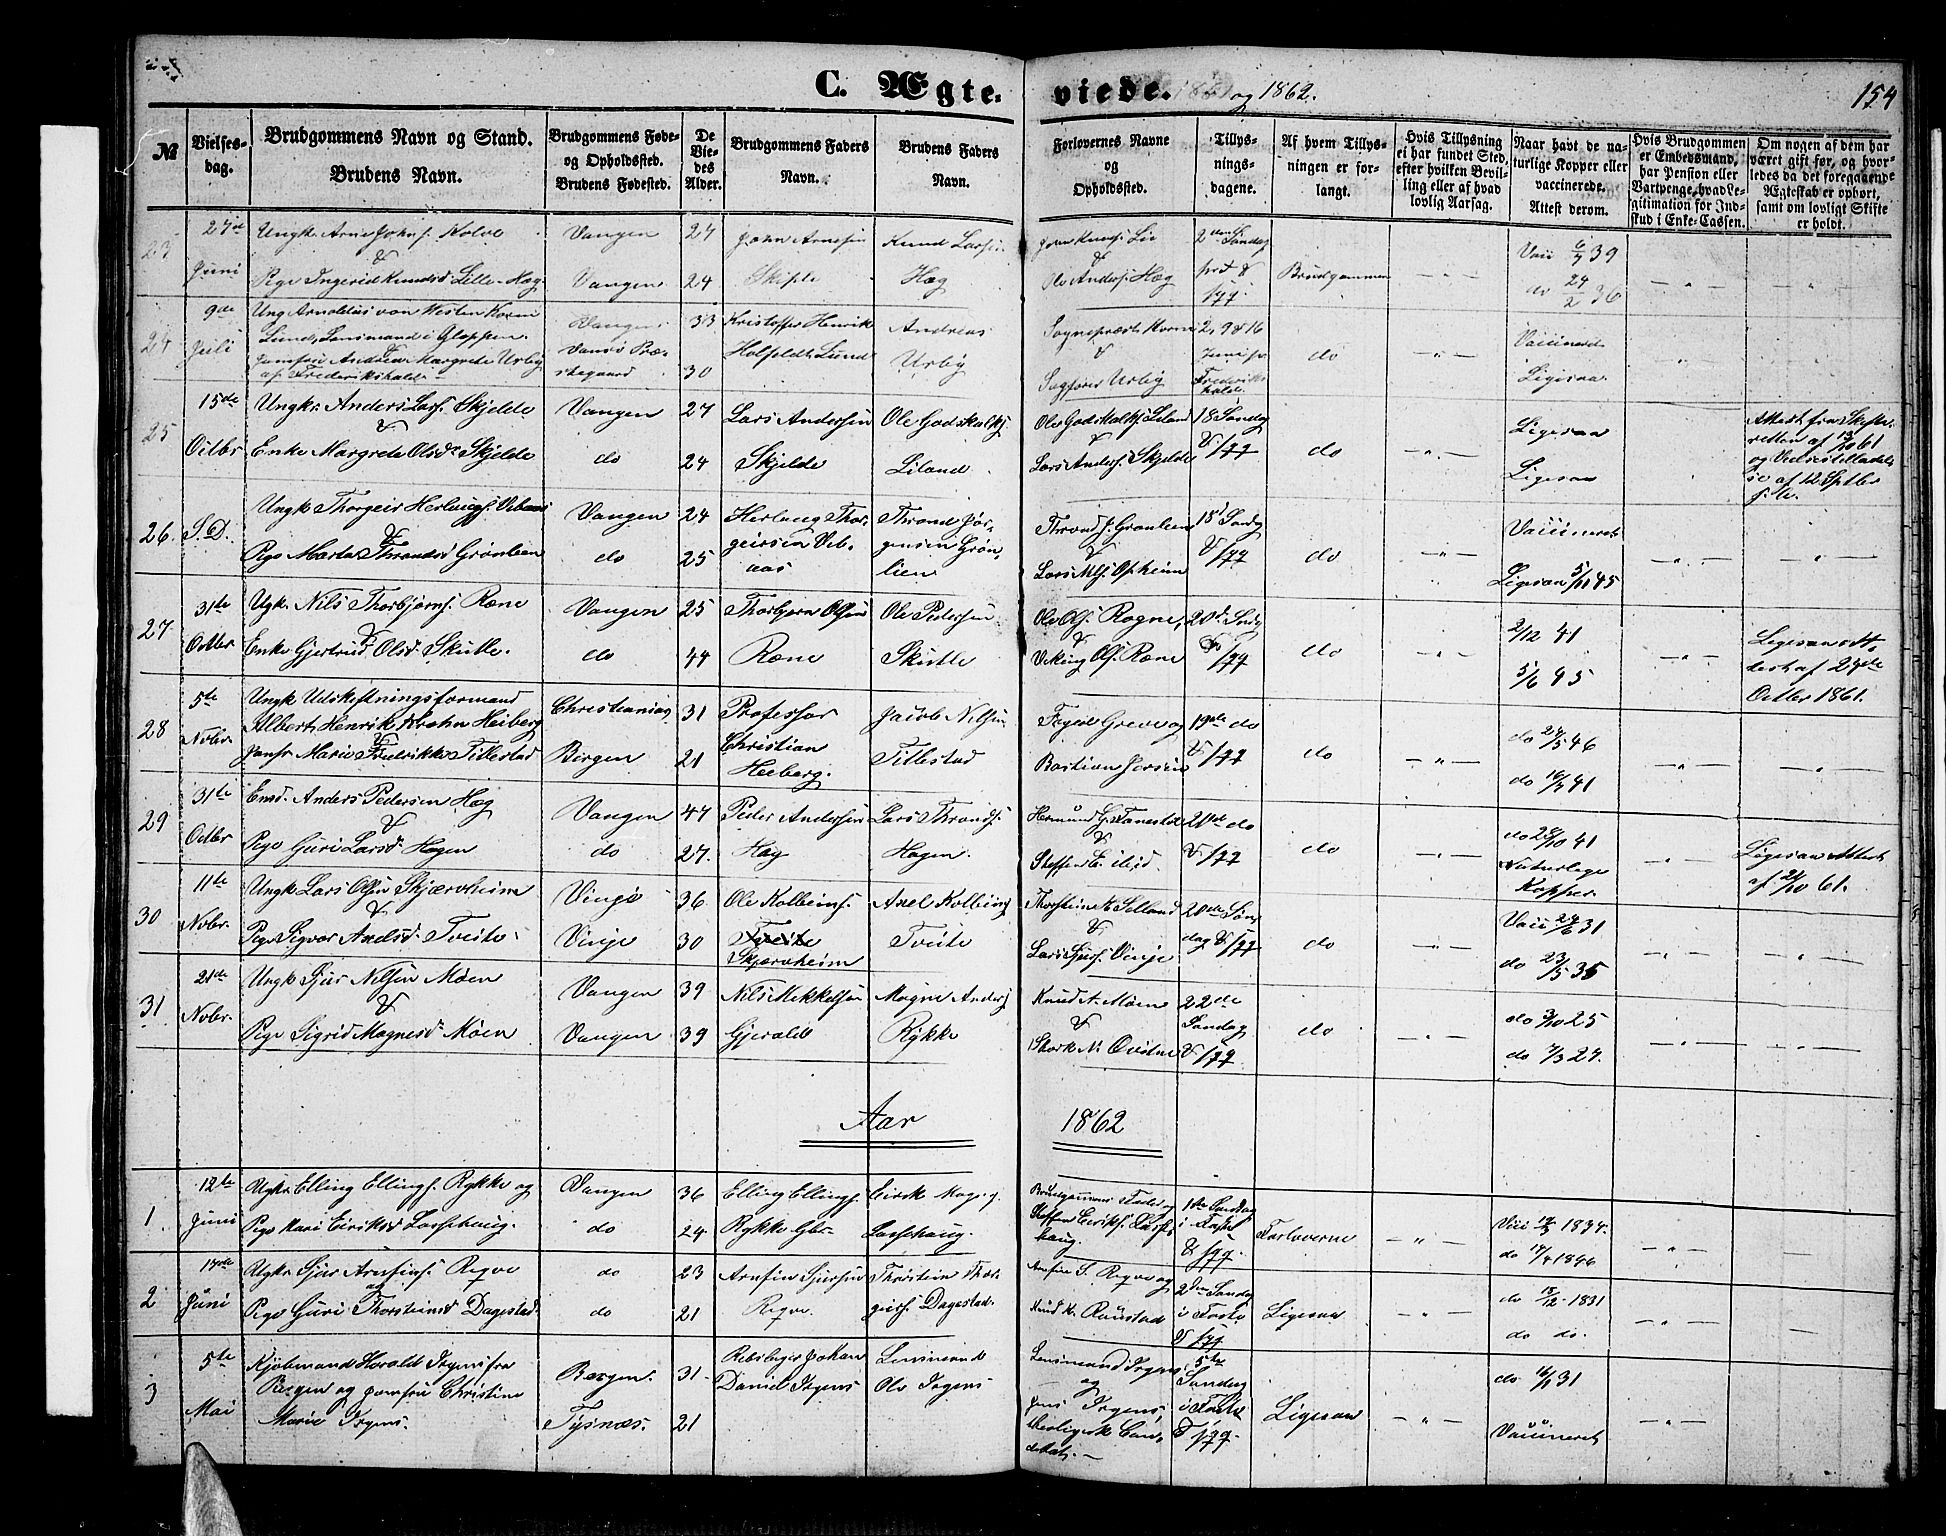 C. Ægte-
viede. 1861 og 1862.
154
№
Vielses-
dag.
Brudgommens Navn og Stand.
Brudens Navn.
Brudgommens Føde-
og Opholdssted.
Brudens Fødested.
De
Vie-
des
Alder.
Brudgommens Faders
Navn.
Brudens Faders
Navn.
Forlovernes Navne
og
Opholdssted.
Tillys-
nings-
dagene.
Af hvem Tillys-
ningen er for-
langt.
Hvis Tillysning
ei har fundet Sted,
efter hvilken Bevil-
ling eller af hvad
lovlig Aarsag.
Naar havt de na-
turlige Kopper eller
vaccinerede.
Attest derom.
Hvis Brudgommen
er Embedsmand,
har Pension eller
Vartpenge, hvad Le-
gitimation for Ind-
skud i Enke-Cassen.
Om nogen af dem har
været gift før, og hvor-
ledes da det foregaaende
Ægteskab er ophørt,
samt om lovligt Skifte
er holdt.
23
27de
Juni
Ungk. Arne Johns. Kolve
&
Pige Ingerid Knudsd. Lille-Hæg
Vangen
Vangen
27
24
John Arnesen
Knud Larsen
Hæg
John Knuds. Lie
&
Ole Anders. Hæg
2den Søndag
Brudgommen
Vaii 6/7 39
do 24/2 36
24
9de
Juli
Ung Arnoldus von Westen Koren
Lund, Lensmand i Gloppen
&
Jomfru Andrea Margrete Urby
af Frederikshald
Vangen
33
30
Kristoffer Henrik
Holfeldt Lund
Andreas
Urby
Sogneprest Koren
&
Sagfører Urby
2, 9 & 16
Juni
Frederiks
hald
do
Vaccinered
Ligesaa
25
15de
Octbr
Ungkr. Anders Lars. Skjelde
&
Enke Margrete Olsdr Skjelde
Vangen
do
27
24
Lars Andersen
Skjelde
Ole Godskalks.
Liland
Ole Godskalks. Liland
&
Lars Anders. Skjelde
18 Søndag
& 177
do
Ligesaa
Ligesaa
Attest fra Skifte-
retten af 12/10 61
og Vielsestilladel-
se af 12 Septber
26.
S.D.
Ungk Thorgeir Herlaugs. Vebaas
&
Pige Marta Throndsd Grønlien
Vangen
do
24
25
Herlaug Thor-
geirsen Veb-
aas
Thrond Jør-
gensen Grøn-
lien
Thrond J. Grønlien
&
Lars Mls. Opheim
18d Søndg
& 177
do
Vaccineret
Ligesaa 5/11 45
27
31te
Octbr
Ugk. Nils Thorbjørns. Ræne
&
Enke Gjertrud Olsd. Skutle.
Vangen
do
25
44
Thorbjørn Olsen
Ræne
Ole Pedersen
Skutle
Ole Ols. Rogne,
&
Viking Ols. Ræne
20d. Søndg
& 177
do
2/12 41
5/6 45
Ligesaa At-
test af 24de
Octber 1861.
28
5te
Nobr.
Ungk Udskiftningsformand
Albert Henrik Krohn Heiberg
&
Jomfr Marie Fredrikke Tillestad
Christiania
Bergen
31
21
Professor
Christian
Heiberg.
Jacob Nilsen
Tillestad
Foged Greve og
Bastian
19de do
& 177
do
do 24/5 46
do 16/7 41
29
31te
Octbr
Enkd. Anders Pedersen Hæg
&
Pige Guri Larsd. Hagen
Vangen
do
47
27.
Peder Andersen
Hæg
Lars Thronds.
Hagen.
Hermund G. Tønestad
&
Steffen E. Lid
20de do
& 177
do
do 28/10 41
Naturlige
Kopper.
Ligesaa Attest
af 24/10 61.
30
11te
Nobr.
Ungk Lars Olsen Skjærvheim
&
Pige Sigvor Axelsd. Tveite
Vinje
Vinje
36
30
Ole Kolbeins.
Tveite
Skjærvheim
Axel Kolbeins
Tveite
Thorstein N. Selland
&
Lars Sjurs. Vinje
20de Søn-
dag & 177
do
Vaii 24/6 31
do 23/5 35
31
21de
Nobr.
Ungk Sjur Nilsen Møen
&
Pige Sigrid Magnesd. Møen
Vangen
Vangen
39
39
Nils Mikkelsen
Gjerald
Magne Anders
Rykke
Knud N. Møen
&
22de
Søndag
& 177
do
do 3/10 25
do 7/3 27.
Aar 1862
1.
12te
Juni
Ugkr. Elling Ellings. Rykke og
Pige Kari Eiriksd Lassehaug.
Vangen
do
36
24
Elling Ellings.
Rykke
Eirik
Lassehaug.
Brudgommens Fader og
Steffen Eiriks. Lasse-
haug.
1ste Søndag
i Faste
& 177.
Forloverne
Vaii 1834.
do 17/4 1846
2
Juni
Ugkr Sjur Arnfins. Reqve
og
Pige Guri Thorsteinsd Dagestad
do
do
23
21
Arnfin Sjursen
Reqve.
Thorstein Thor-
geirs. Dagestad.
Arnfin S. Reqve og
Knud K. Rønstad
2den Søndag
i Faste
& 177
Ligesaa
do 18/12 1831
do do.
3
5te
Mai
Kjøbmand Harald Irgens fra
Bergen og Jomfru Christine
Marie Irgens.
Bergen.
Tysnæs.
31
21
Rebslager Johan
Daniel Irgens
Lensmand
Ole Irgens
Lensmand Irgens
og
Jens Irgens,
theologisk Can-
didat.
5te
Søndag
i Faste
& 177.
Ligesaa
do 16/1 31
Vaccineret